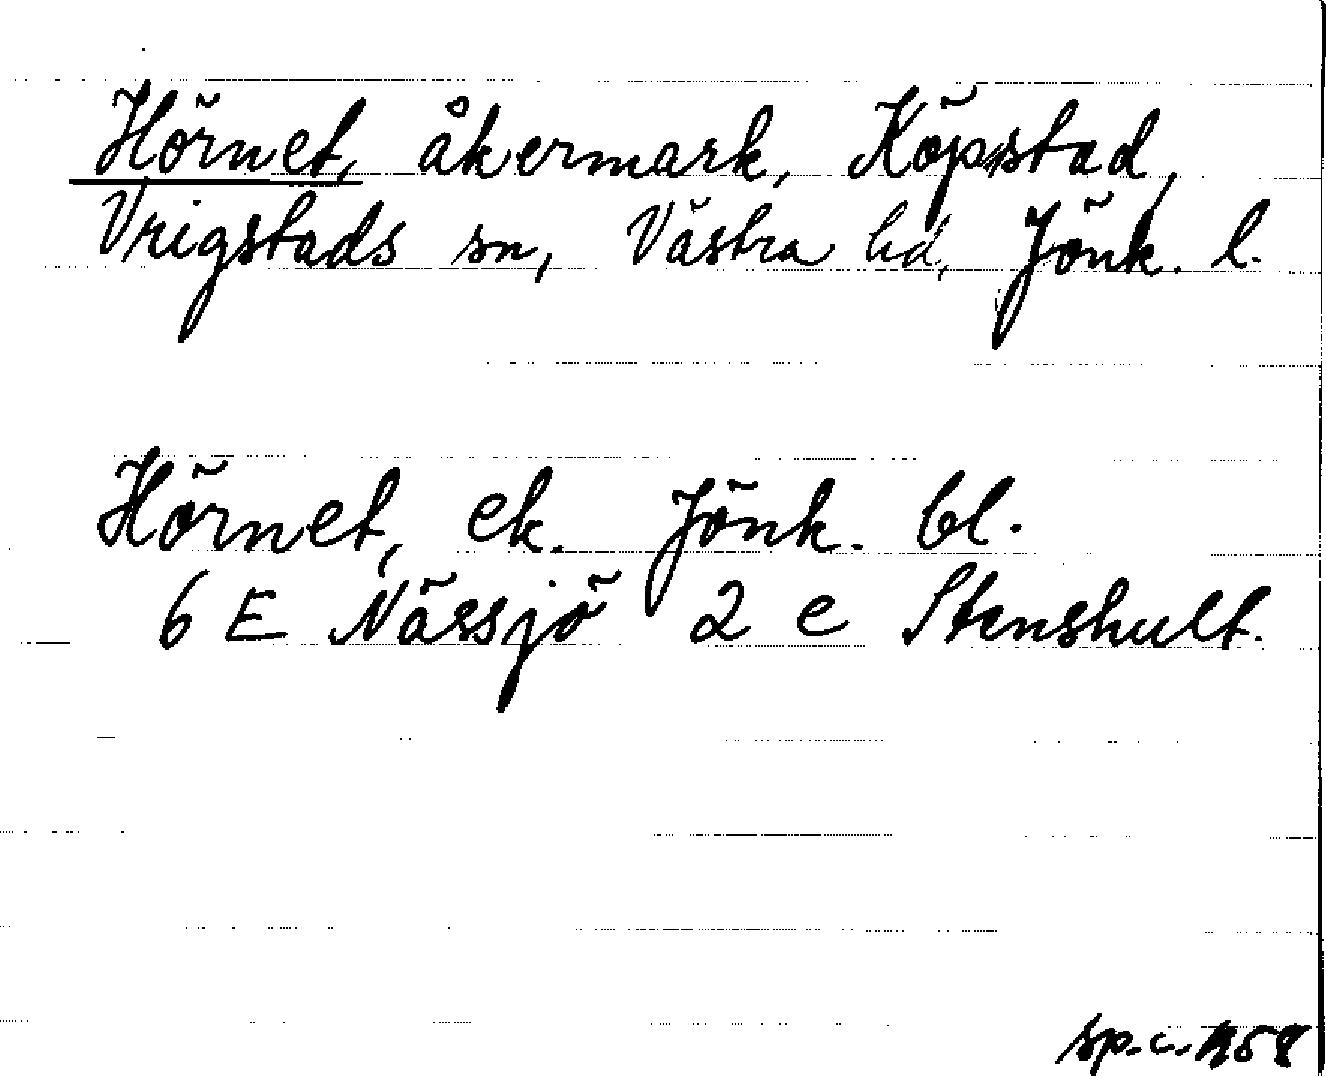 Hörnet, åkermark, Köpstad,
Vrigstads sn, Västra hd, Jönk. l.
Hörnet, ek. Jönk. bl.
6 E Nässjö 2 e Stenshult.
sp.c. 1958